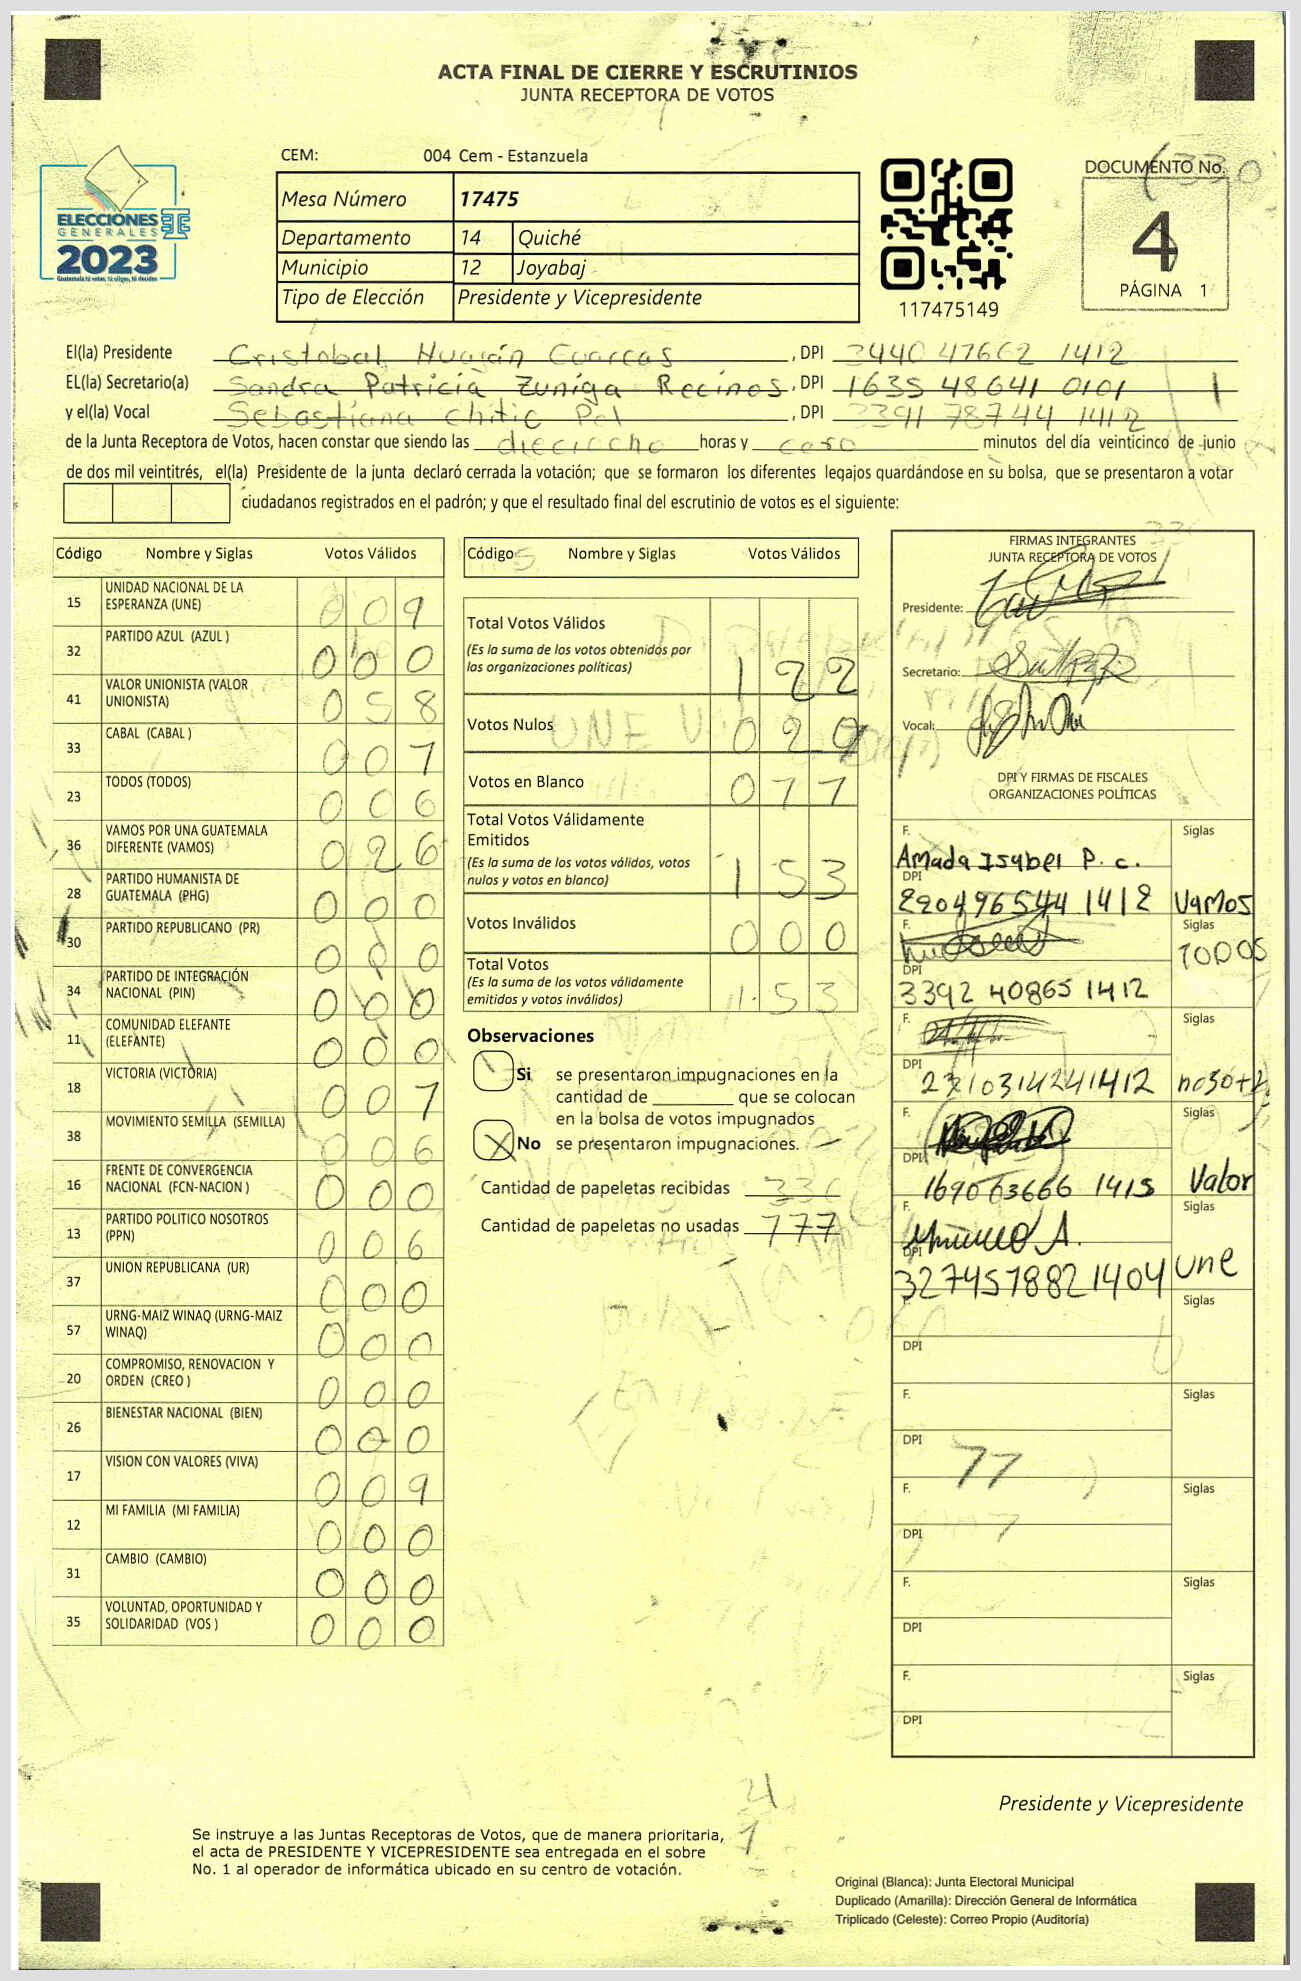 ACTA FINAL DE CIERRE Y ESCRUTINIOS
JUNTA RECEPTORA DE VOTOS
CEM: 004 Cem - Estanzuela
DOCUMENTO No.
4
PÁGINA 1
ELECCIONES
GENERALES
2023
Guatemala tú votas, tú eliges, tú decides
Mesa Número 17475
Departamento 14 Quiché
Municipio 12 Joyabaj
Tipo de Elección Presidente y Vicepresidente
117475149
El(la) Presidente Cristobal Huaján Cuarcas, DPI 3440 47662 1412
EL(la) Secretario(a) Sandra Patricia Zuniga Recinos, DPI 1635 48641 0101
y el(la) Vocal Sebastiana Chitic Pol, DPI 3391 78744 1412
de la Junta Receptora de Votos, hacen constar que siendo las dieciocho horas y cero minutos del día veinticinco de junio
de dos mil veintitrés, el(la) Presidente de la junta declaró cerrada la votación; que se formaron los diferentes legajos quardándose en su bolsa, que se presentaron a votar
ciudadanos registrados en el padrón; y que el resultado final del escrutinio de votos es el siguiente:
Código Nombre y Siglas Votos Válidos
15 UNIDAD NACIONAL DE LA ESPERANZA (UNE) 009
32 PARTIDO AZUL (AZUL ) 000
41 VALOR UNIONISTA (VALOR UNIONISTA) 058
33 CABAL (CABAL ) 007
23 TODOS (TODOS) 006
36 VAMOS POR UNA GUATEMALA DIFERENTE (VAMOS) 026
28 PARTIDO HUMANISTA DE GUATEMALA (PHG) 000
30 PARTIDO REPUBLICANO (PR) 000
34 PARTIDO DE INTEGRACIÓN NACIONAL (PIN) 000
11 COMUNIDAD ELEFANTE (ELEFANTE) 000
18 VICTORIA (VICTORIA) 007
38 MOVIMIENTO SEMILLA (SEMILLA) 006
16 FRENTE DE CONVERGENCIA NACIONAL (FCN-NACION ) 000
13 PARTIDO POLITICO NOSOTROS (PPN) 006
37 UNION REPUBLICANA (UR) 000
57 URNG-MAIZ WINAQ (URNG-MAIZ WINAQ) 000
20 COMPROMISO, RENOVACION Y ORDEN (CREO ) 000
26 BIENESTAR NACIONAL (BIEN) 000
17 VISION CON VALORES (VIVA) 009
12 MI FAMILIA (MI FAMILIA) 000
31 CAMBIO (CAMBIO) 000
35 VOLUNTAD, OPORTUNIDAD Y SOLIDARIDAD (VOS ) 000
Código Nombre y Siglas Votos Válidos
Total Votos Válidos 122
(Es la suma de los votos obtenidos por
las organizaciones políticas)
Votos Nulos 020
Votos en Blanco 011
Total Votos Válidamente
Emitidos 153
(Es la suma de los votos válidos, votos
nulos y votos en blanco)
Votos Inválidos 000
Total Votos 153
(Es la suma de los votos válidamente
emitidos y votos inválidos)
Observaciones
Si se presentaron impugnaciones en la
cantidad de ________ que se colocan
en la bolsa de votos impugnados
X No se presentaron impugnaciones.
Cantidad de papeletas recibidas 330
Cantidad de papeletas no usadas 177
FIRMAS INTEGRANTES
JUNTA RECEPTORA DE VOTOS
Presidente:
Secretario:
Vocal:
DPI Y FIRMAS DE FISCALES
ORGANIZACIONES POLÍTICAS
F. Siglas
Amada Isabel P. c.
DPI
2204965441412 VAMOS
F. Siglas
TODOS
DPI
3392 40865 1412
F. Siglas
DPI
2310314241412
F. Siglas
DPI
169063666 1415 Valor
F. Siglas
DPI
3274578821404 une
F. Siglas
DPI
F. Siglas
DPI
77
F. Siglas
DPI
F. Siglas
DPI
F. Siglas
DPI
Presidente y Vicepresidente
Se instruye a las Juntas Receptoras de Votos, que de manera prioritaria,
el acta de PRESIDENTE Y VICEPRESIDENTE sea entregada en el sobre
No. 1 al operador de informática ubicado en su centro de votación.
Original (Blanca): Junta Electoral Municipal
Duplicado (Amarilla): Dirección General de Informática
Triplicado (Celeste): Correo Propio (Auditoría)